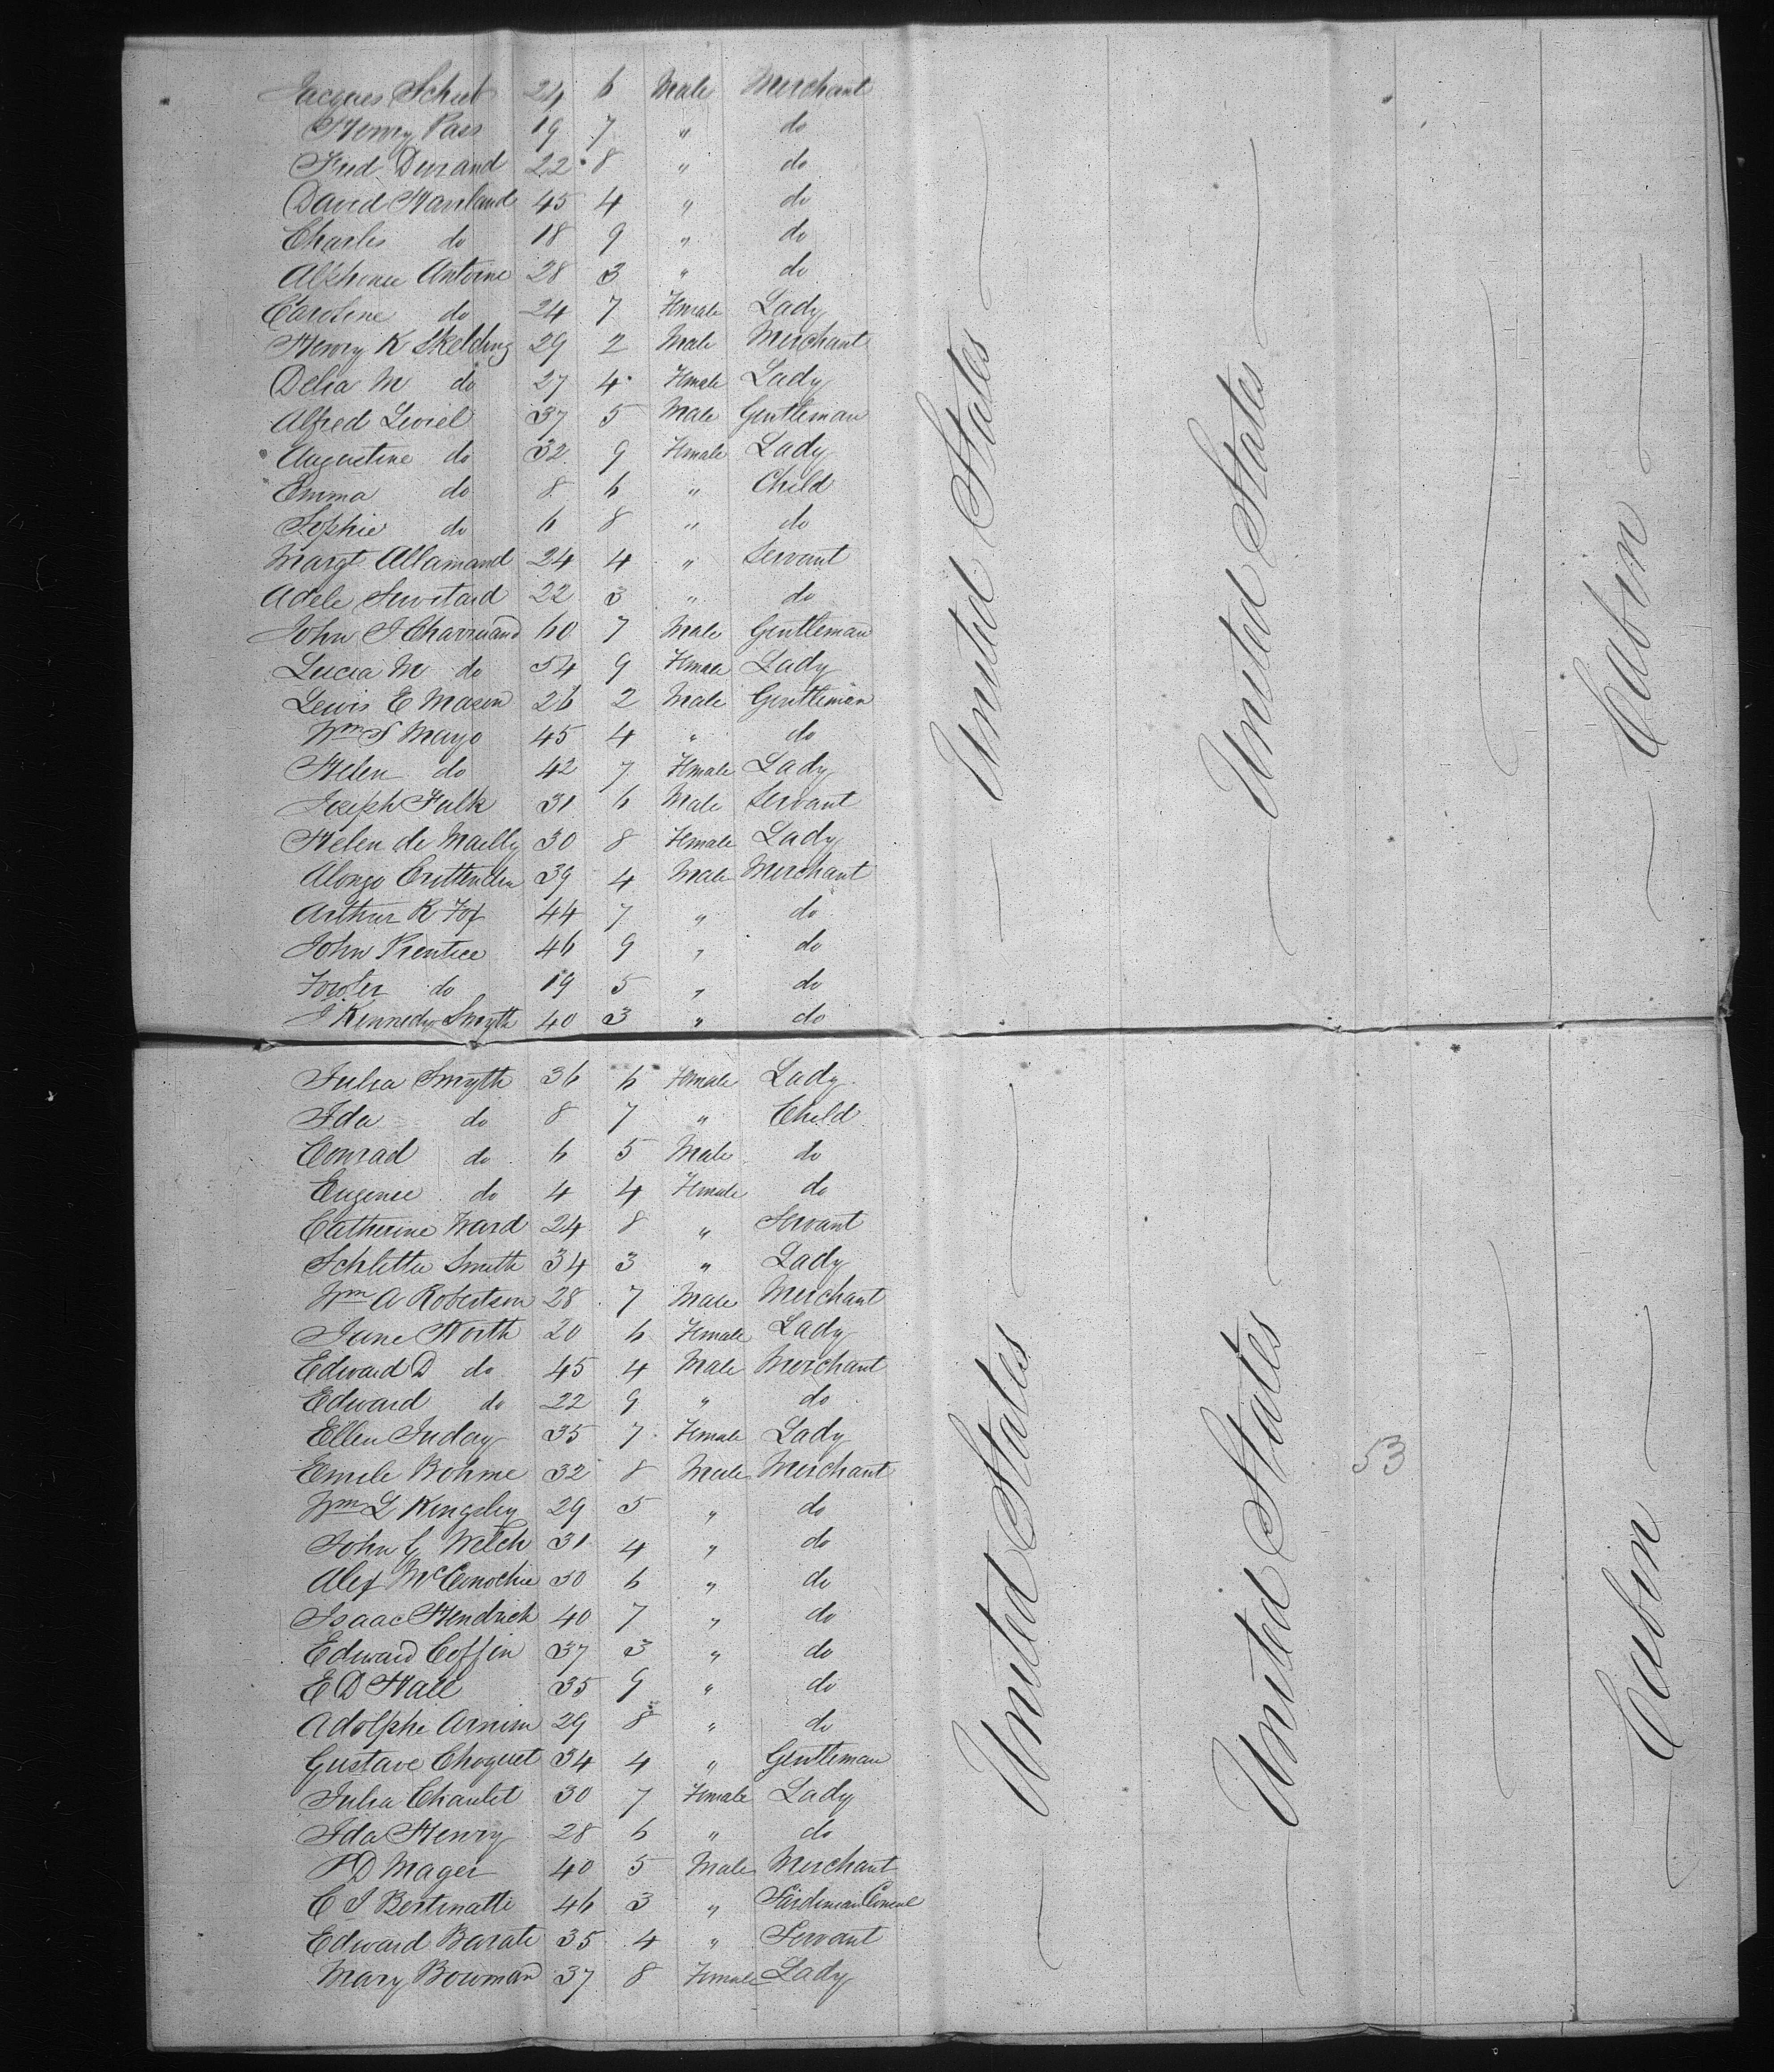 Jacques Schub 24 6 Male Merchant
Henry Pass 19 7 " do
Fred Durand 22 8 " do
David Haviland 45 4 " do
Charles do 18 9 " do
Alphonse Antoine 28 3 " do
Caroline do 24 7 Female Lady
Henry K Skelding 29 2 Male Merchant
Delia M do 27 4 Female Lady
Alfred Leviel 37 5 Male Gentleman
Augustine do 32 9 Female Lady
Emma do 8 6 " Child
Sophie do 6 8 " do
Margt Allamand 24 4 " Servant
Adele 22 3 " do
John J Charruaud 60 7 Male Gentleman
Lucia M do 54 9 Female Lady
Lewis E Mason 26 2 Male Gentleman
Wm S Mayo 45 4 " do
Helen do 42 7 Female Lady
Joseph Falk 31 6 Male Servant
Helen de Mailly 30 8 Female Lady
Alonzo Crittenden 39 4 Male Merchant
Arthur R Fox 44 7 " do
John Prentice 46 9 " do
Foster do 19 5 " do
J Kennedy Smyth 40 3 " do
United States
United States
Cabin
Julia Smyth 36 6 Female Lady
Ida do 8 7 " Child
Conrad do 6 5 Male do
Eugenee do 4 4 Female do
Catherine Ward 24 8 " Servant
Smith 34 3 " Lady
Wm A Robertson 28 7 Male Merchant
June North 20 6 Female Lady
Edward D do 45 4 Male Merchant
Edward do 22 9 " do
Ellen Juday 35 7 Female Lady
Emile Bohme 32 8 Male Merchant
Wm L Kingsley 29 5 " do
John G Welch 31 4 " do
Alex McConochie 30 6 " do
Isaac Hendrick 40 7 " do
Edward Coffin 37 3 " do
E D Hall 35 9 " do
Adolphe Arnim 29 8 " do
Gustave Choquet 34 4 " Gentleman
Julia Chaulet 30 7 Female Lady
Ida Henry 28 6 " do
P D Mager 40 5 Male Merchant
C J Bertinatti 46 3 " Sardinian Consul
Edward Barate 35 4 " Servant
Mary Bowman 37 8 Female Lady
United States
United States
53
Cabin